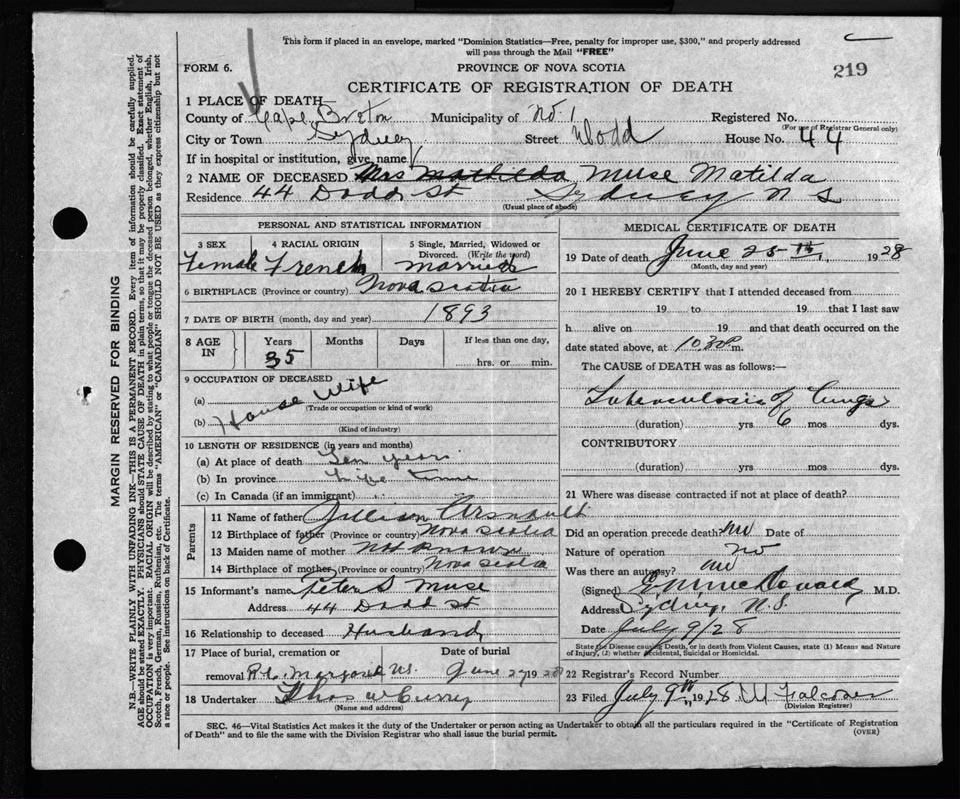 This form if placed in an envelope, marked "Dominion Statistics—Free, penalty for improper use, $300," and properly addressed
will pass through the Mail "FREE"
FORM 6.
PROVINCE OF NOVA SCOTIA
219
CERTIFICATE OF REGISTRATION OF DEATH
1 PLACE OF DEATH—
County of Cape Breton Municipality of No. 1 Registered No.
(For use of Registrar General only)
City or Town Sydney Street Dodd House No. 44
If in hospital or institution, give name
2 NAME OF DECEASED Mrs Mathilda Muse Matilda
Residence 44 Dodd St Sydney N S
(Usual place of abode)
PERSONAL AND STATISTICAL INFORMATION
3 SEX
Female
4 RACIAL ORIGIN
French
5 Single, Married, Widowed or
Divorced. (Write the word)
Married
6 BIRTHPLACE (Province or country) Nova Scotia
7 DATE OF BIRTH (month, day and year) 1893
8 AGE IN
Years
35
Months
Days
If less than one day,
hrs. or min.
9 OCCUPATION OF DECEASED
(a) House Wife
(Trade or occupation or kind of work)
(b)
(Kind of industry)
10 LENGTH OF RESIDENCE (in years and months)
(a) At place of death Ten years
(b) In province Life time
(c) In Canada (if an immigrant)
Parents
11 Name of father Arsnault
12 Birthplace of father (Province or country) Nova Scotia
13 Maiden name of mother
14 Birthplace of mother (Province or country) Nova Scotia
15 Informant's name Peter S Muse
Address 44 Dodd St
16 Relationship to deceased Husband
17 Place of burial, cremation or Date of burial
removal R.C. N.S. June 27 1928
18 Undertaker Thos W Curry
(Name and address)
MEDICAL CERTIFICATE OF DEATH
19 Date of death June 25th, 1928
(Month, day and year)
20 I HEREBY CERTIFY that I attended deceased from
19 to 19 that I last saw
h alive on 19 and that death occurred on the
date stated above, at 10.30 P m.
The CAUSE of DEATH was as follows:—
Tuberculosis of Lungs
(duration) yrs 6 mos dys.
CONTRIBUTORY
(duration) yrs. mos dys.
21 Where was disease contracted if not at place of death?
Did an operation precede death? no Date of
Nature of operation no
Was there an autopsy? no
(Signed) M.D.
Address Sydney, N.S.
Date July 9/28
State the Disease causing Death, or in death from Violent Causes, state (1) Means and Nature
of Injury, (2) whether Accidental, Suicidal or Homicidal.
22 Registrar's Record Number
23 Filed July 9th, 1928 Falconer
(Division Registrar)
SEC. 46—Vital Statistics Act makes it the duty of the Undertaker or person acting as Undertaker to obtain all the particulars required in the "Certificate of Registration
of Death" and to file the same with the Division Registrar who shall issue the burial permit.
(OVER)
MARGIN RESERVED FOR BINDING
N.B.—WRITE PLAINLY WITH UNFADING INK—THIS IS A PERMANENT RECORD. Every item of information should be carefully supplied.
AGE should be stated EXACTLY. PHYSICIANS should STATE CAUSE OF DEATH in plain terms, so that it may be properly classified. Exact statement of
OCCUPATION is very important. RACIAL ORIGIN will be described by stating to what people or tongue the deceased person belonged, whether English, Irish,
Scotch, French, German, Russian, Ruthenian, etc. The terms "AMERICAN" or "CANADIAN" SHOULD NOT BE USED as they express citizenship but not
a race or people. See instructions on back of Certificate.